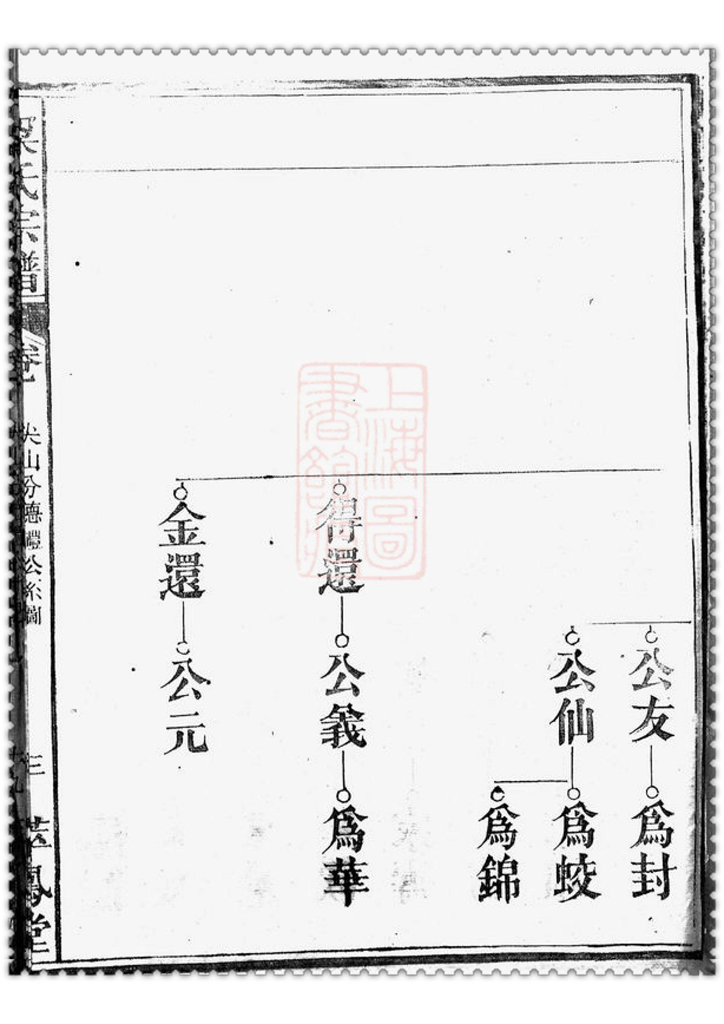 公友
爲封
公仙
爲蛟
爲錦
得還
公義
爲華
金還
公元
氏宗譜
卷
尖山分德禮公系圖
三
鳳堂
上海圖
書館藏